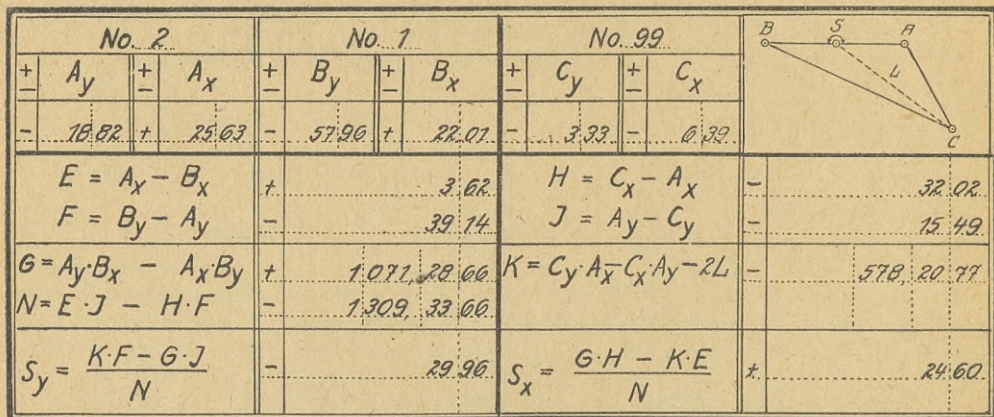 No. 2 No. 1 No. 99 B S A
+ − A_y + − A_x + − B_y + − B_x + − C_y + − C_x L
− 18 82 + 25 63 − 57 96 + 22 01 − 3 33 − 6 39 C
E = A_x − B_x + 3 62 H = C_x − A_x − 32 02
F = B_y − A_y − 39 14 J = A_y − C_y − 15 49
G = A_y·B_x − A_x·B_y + 1 071, 28 66 K = C_y·A_x − C_x·A_y − 2L − 578, 20 77
N = E·J − H·F − 1 309, 33 66
S_y = (K·F − G·J) / N − 29 96 S_x = (G·H − K·E) / N + 24 60